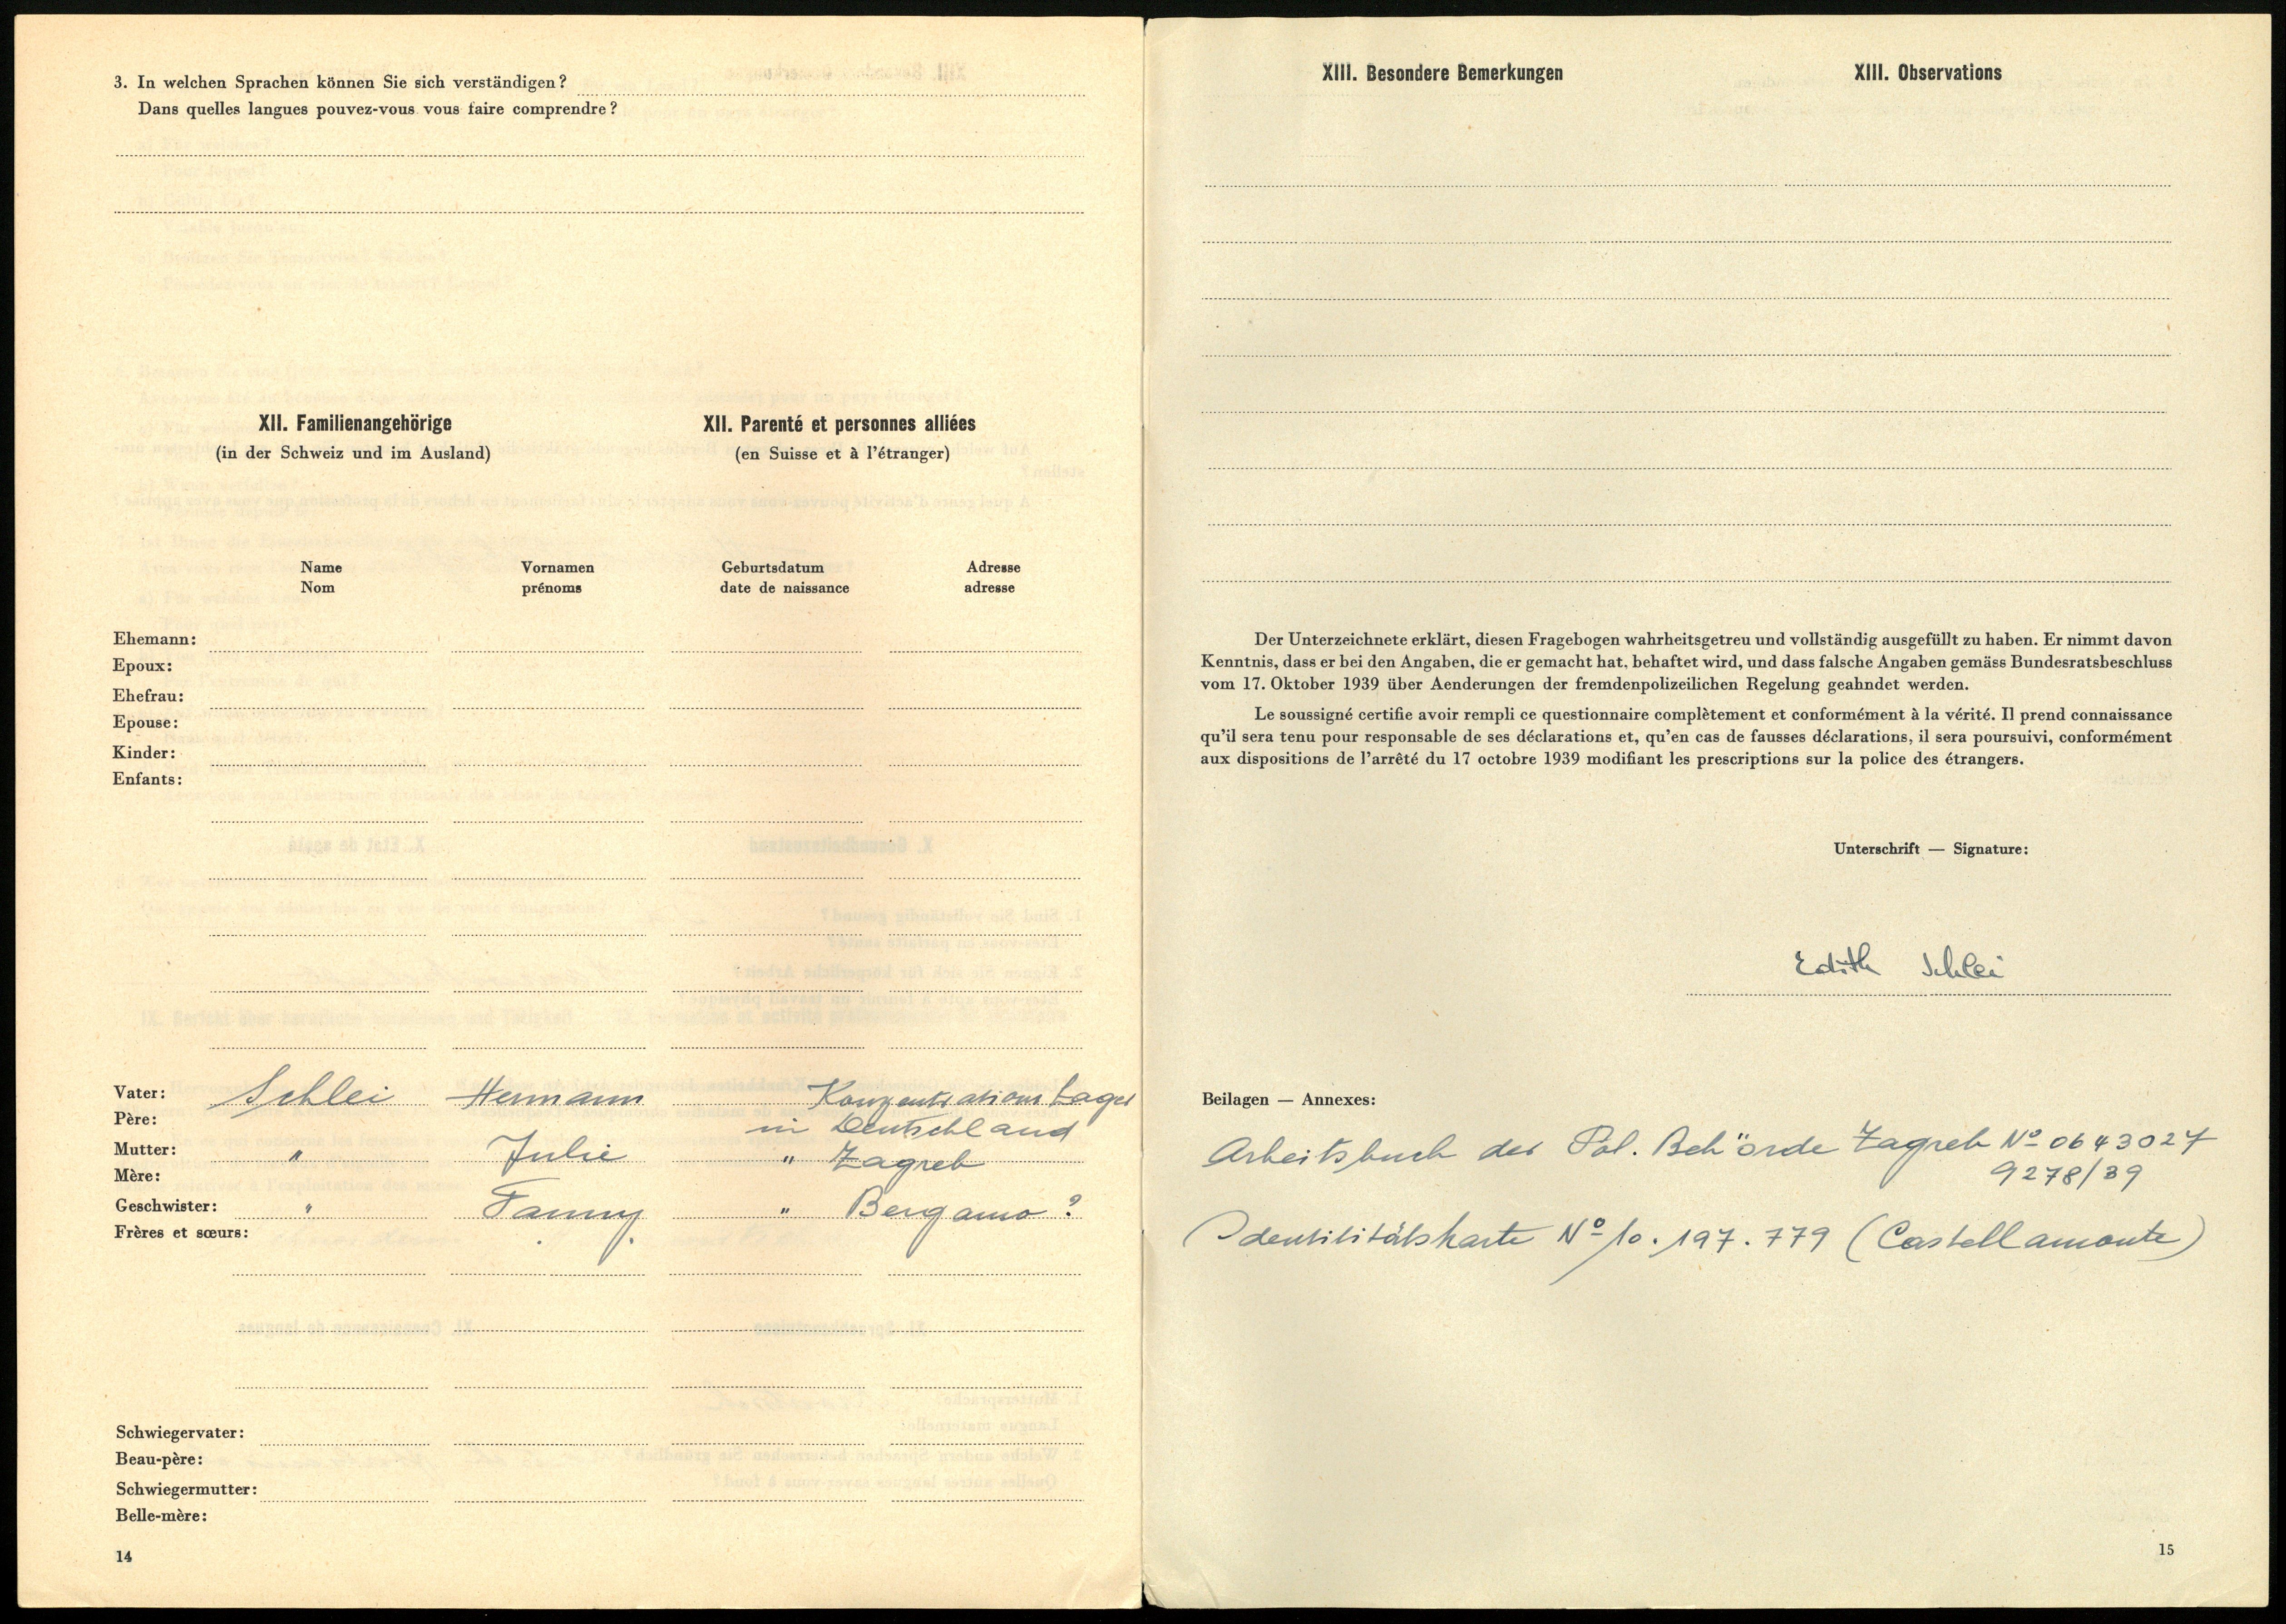 3. In welchen Sprachen können Sie sich verständigen?
Dans quelles langues pouvez-vous vous faire comprendre?
XII. Familienangehörige
(in der Schweiz und im Ausland)
XII. Parenté et personnes alliées
(en Suisse et à l'étranger)
Name Vornamen Geburtsdatum Adresse
Nom prénoms date de naissance adresse
Ehemann:
Epoux:
Ehefrau:
Epouse:
Kinder:
Enfants:
Vater: Schlei Hermann Konzentrations Lager
Père: in Deutschland
Mutter: " Julie " Zagreb
Mère:
Geschwister: " Fanny " Bergamo?
Frères et sœurs:
Schwiegervater:
Beau-père:
Schwiegermutter:
Belle-mère:
14
XIII. Besondere Bemerkungen XIII. Observations
Der Unterzeichnete erklärt, diesen Fragebogen wahrheitsgetreu und vollständig ausgefüllt zu haben. Er nimmt davon
Kenntnis, dass er bei den Angaben, die er gemacht hat, behaftet wird, und dass falsche Angaben gemäss Bundesratsbeschluss
vom 17. Oktober 1939 über Aenderungen der fremdenpolizeilichen Regelung geahndet werden.
Le soussigné certifie avoir rempli ce questionnaire complètement et conformément à la vérité. Il prend connaissance
qu'il sera tenu pour responsable de ses déclarations et, qu'en cas de fausses déclarations, il sera poursuivi, conformément
aux dispositions de l'arrêté du 17 octobre 1939 modifiant les prescriptions sur la police des étrangers.
Unterschrift — Signature:
Edith Schlei
Beilagen — Annexes:
Arbeitsbuch der Pol. Behörde Zagreb Nº 0643027
9278/39
Identilitätskarte Nº 10.197.779 (Castellamonte)
15